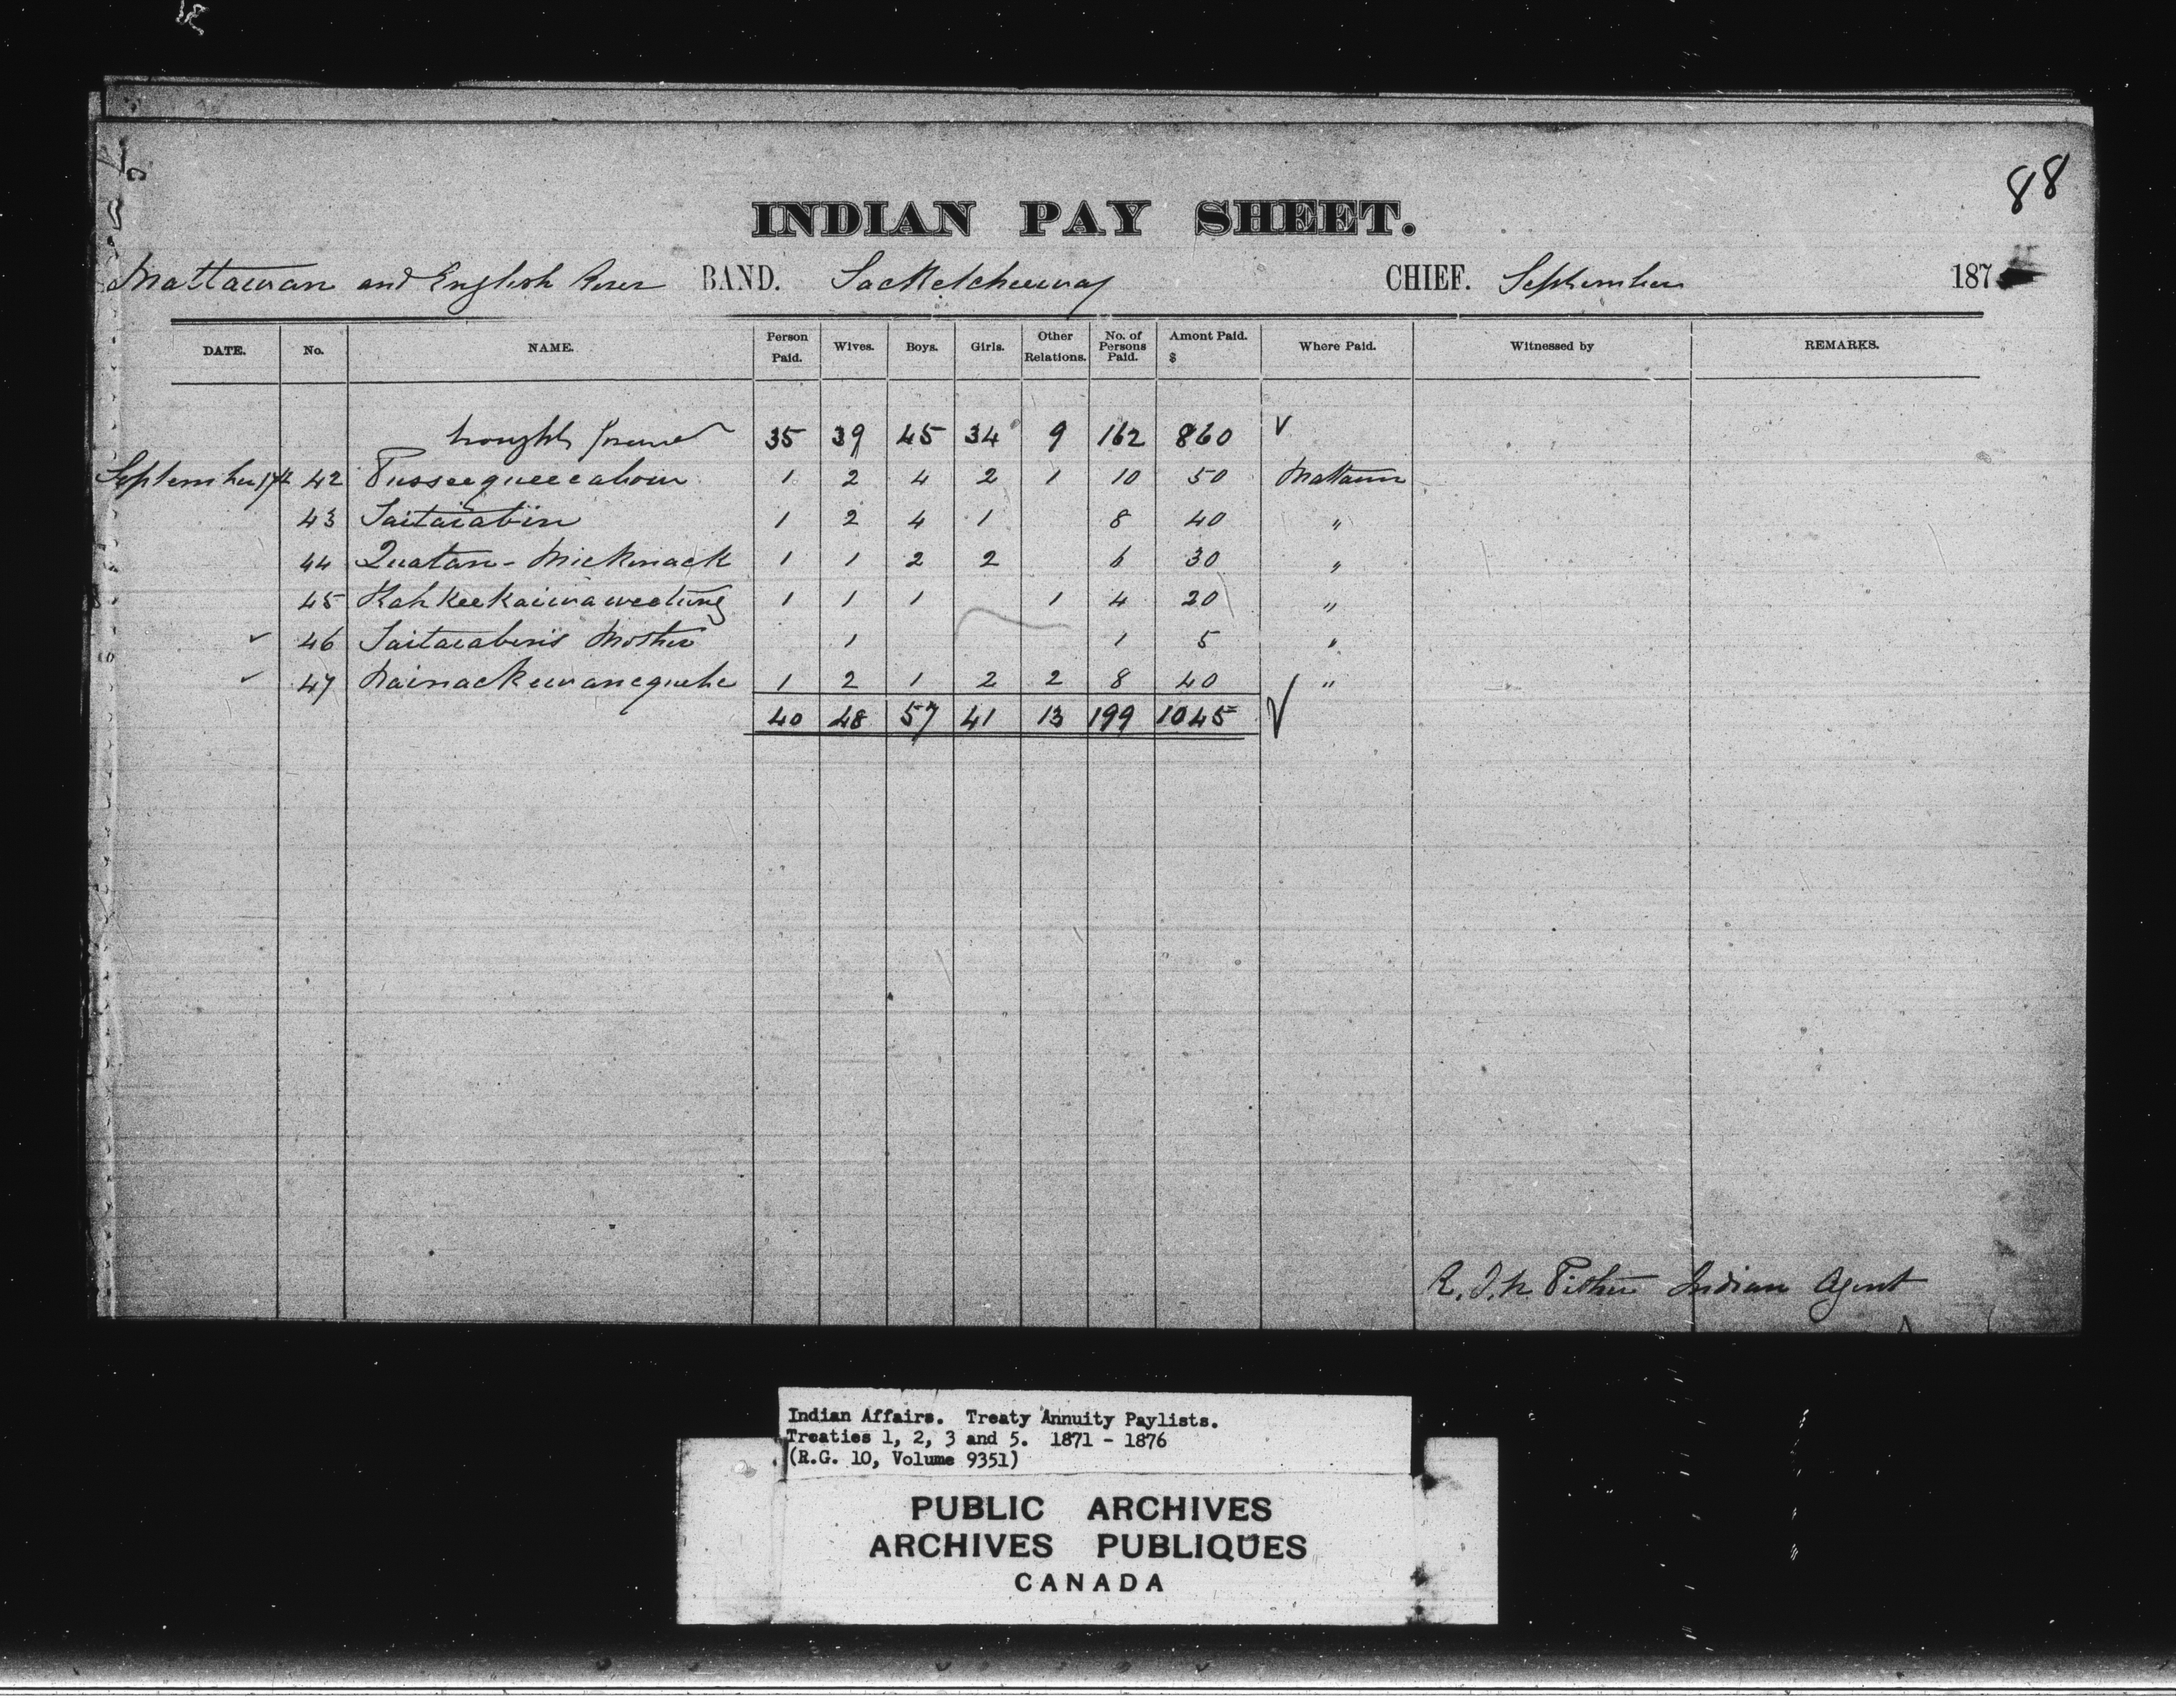 88
INDIAN PAY SHEET.
Mattawan and English River BAND. Sacketcheeway CHIEF. September 187
DATE. No. NAME. Person Paid. Wives. Boys. Girls. Other Relations. No. of Persons Paid. Amont Paid. $ Where Paid. Witnessed by REMARKS.
brought forward 35 39 45 34 9 162 860 ✓
September 17th 42 1 2 4 2 1 10 50 Mattawan
43 Saitaiabin 1 2 4 1 8 40 "
44 Quatan - Mickinack 1 1 2 2 6 30 "
45 Kahkeekaiwaweetung 1 1 1 1 4 20 "
✓ 46 Saitaiabin's Mother 1 1 5 "
✓ 47 1 2 1 2 2 8 40 "
40 48 57 41 13 199 1045 ✓
R. J. N. Pither Indian Agent
Indian Affairs. Treaty Annuity Paylists.
Treaties 1, 2, 3 and 5. 1871 - 1876
(R.G. 10, Volume 9351)
PUBLIC ARCHIVES
ARCHIVES PUBLIQUES
CANADA